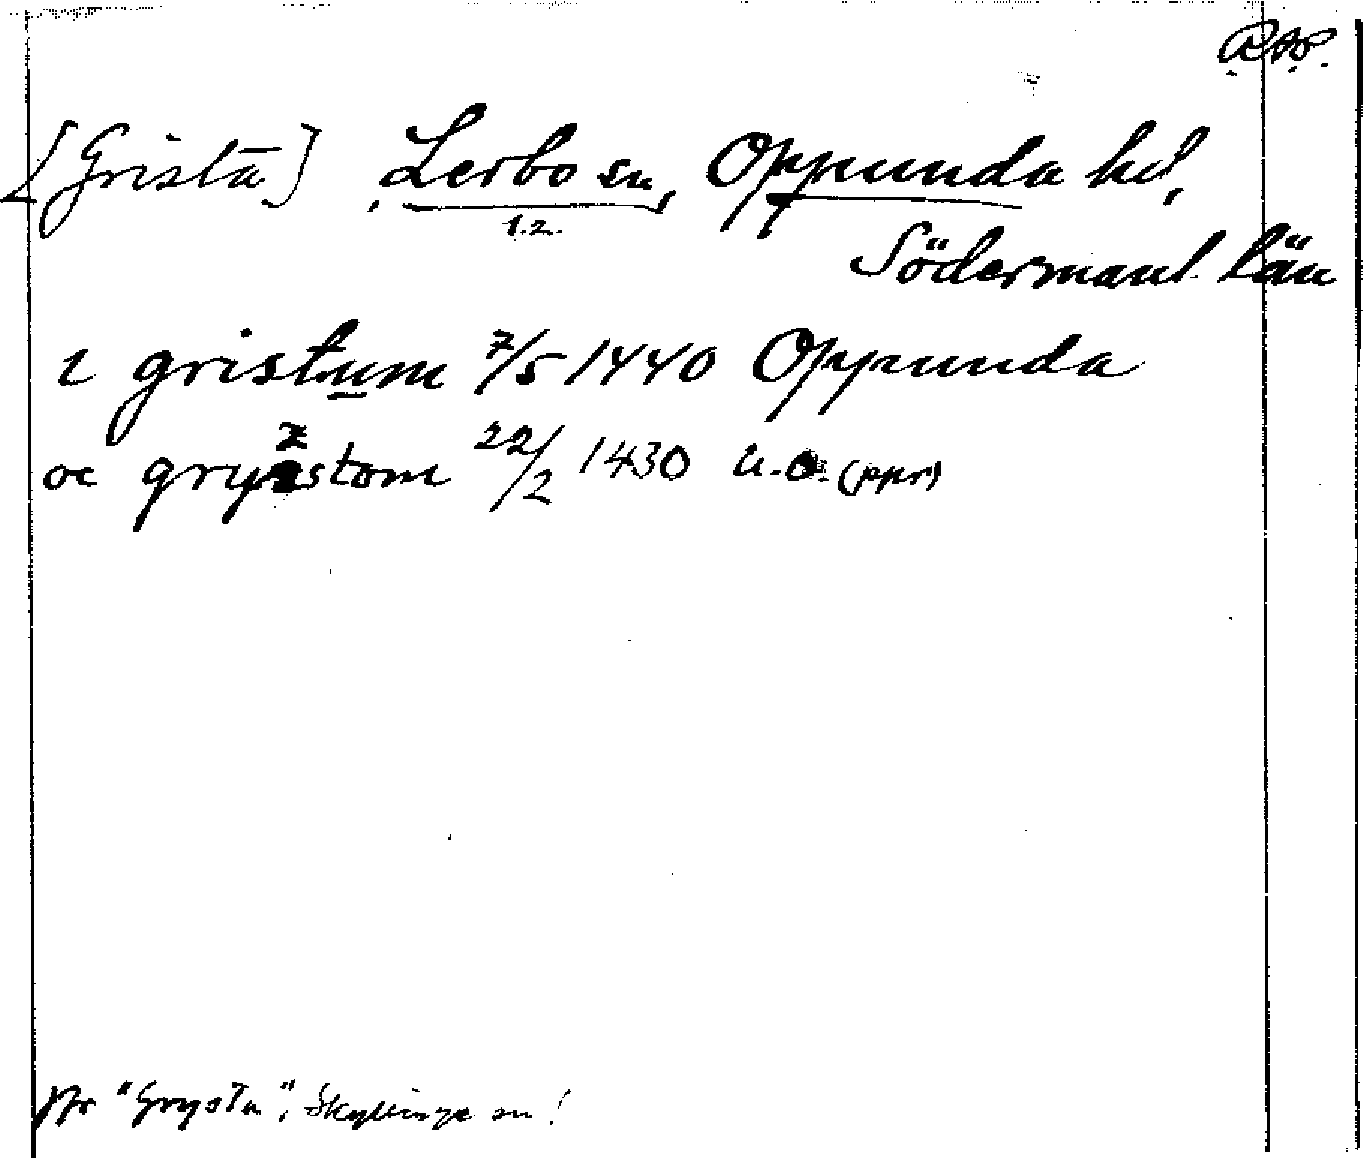 RAP.
[Grista], Lerbo sn, Oppunda hd,
1.2.
Södermanl. län
i gristum 7/5 1440 Oppunda
oc gryzstom 22/2 1430 u.o. (ppr)
Jfr "Grysta", Skyllinge sn!